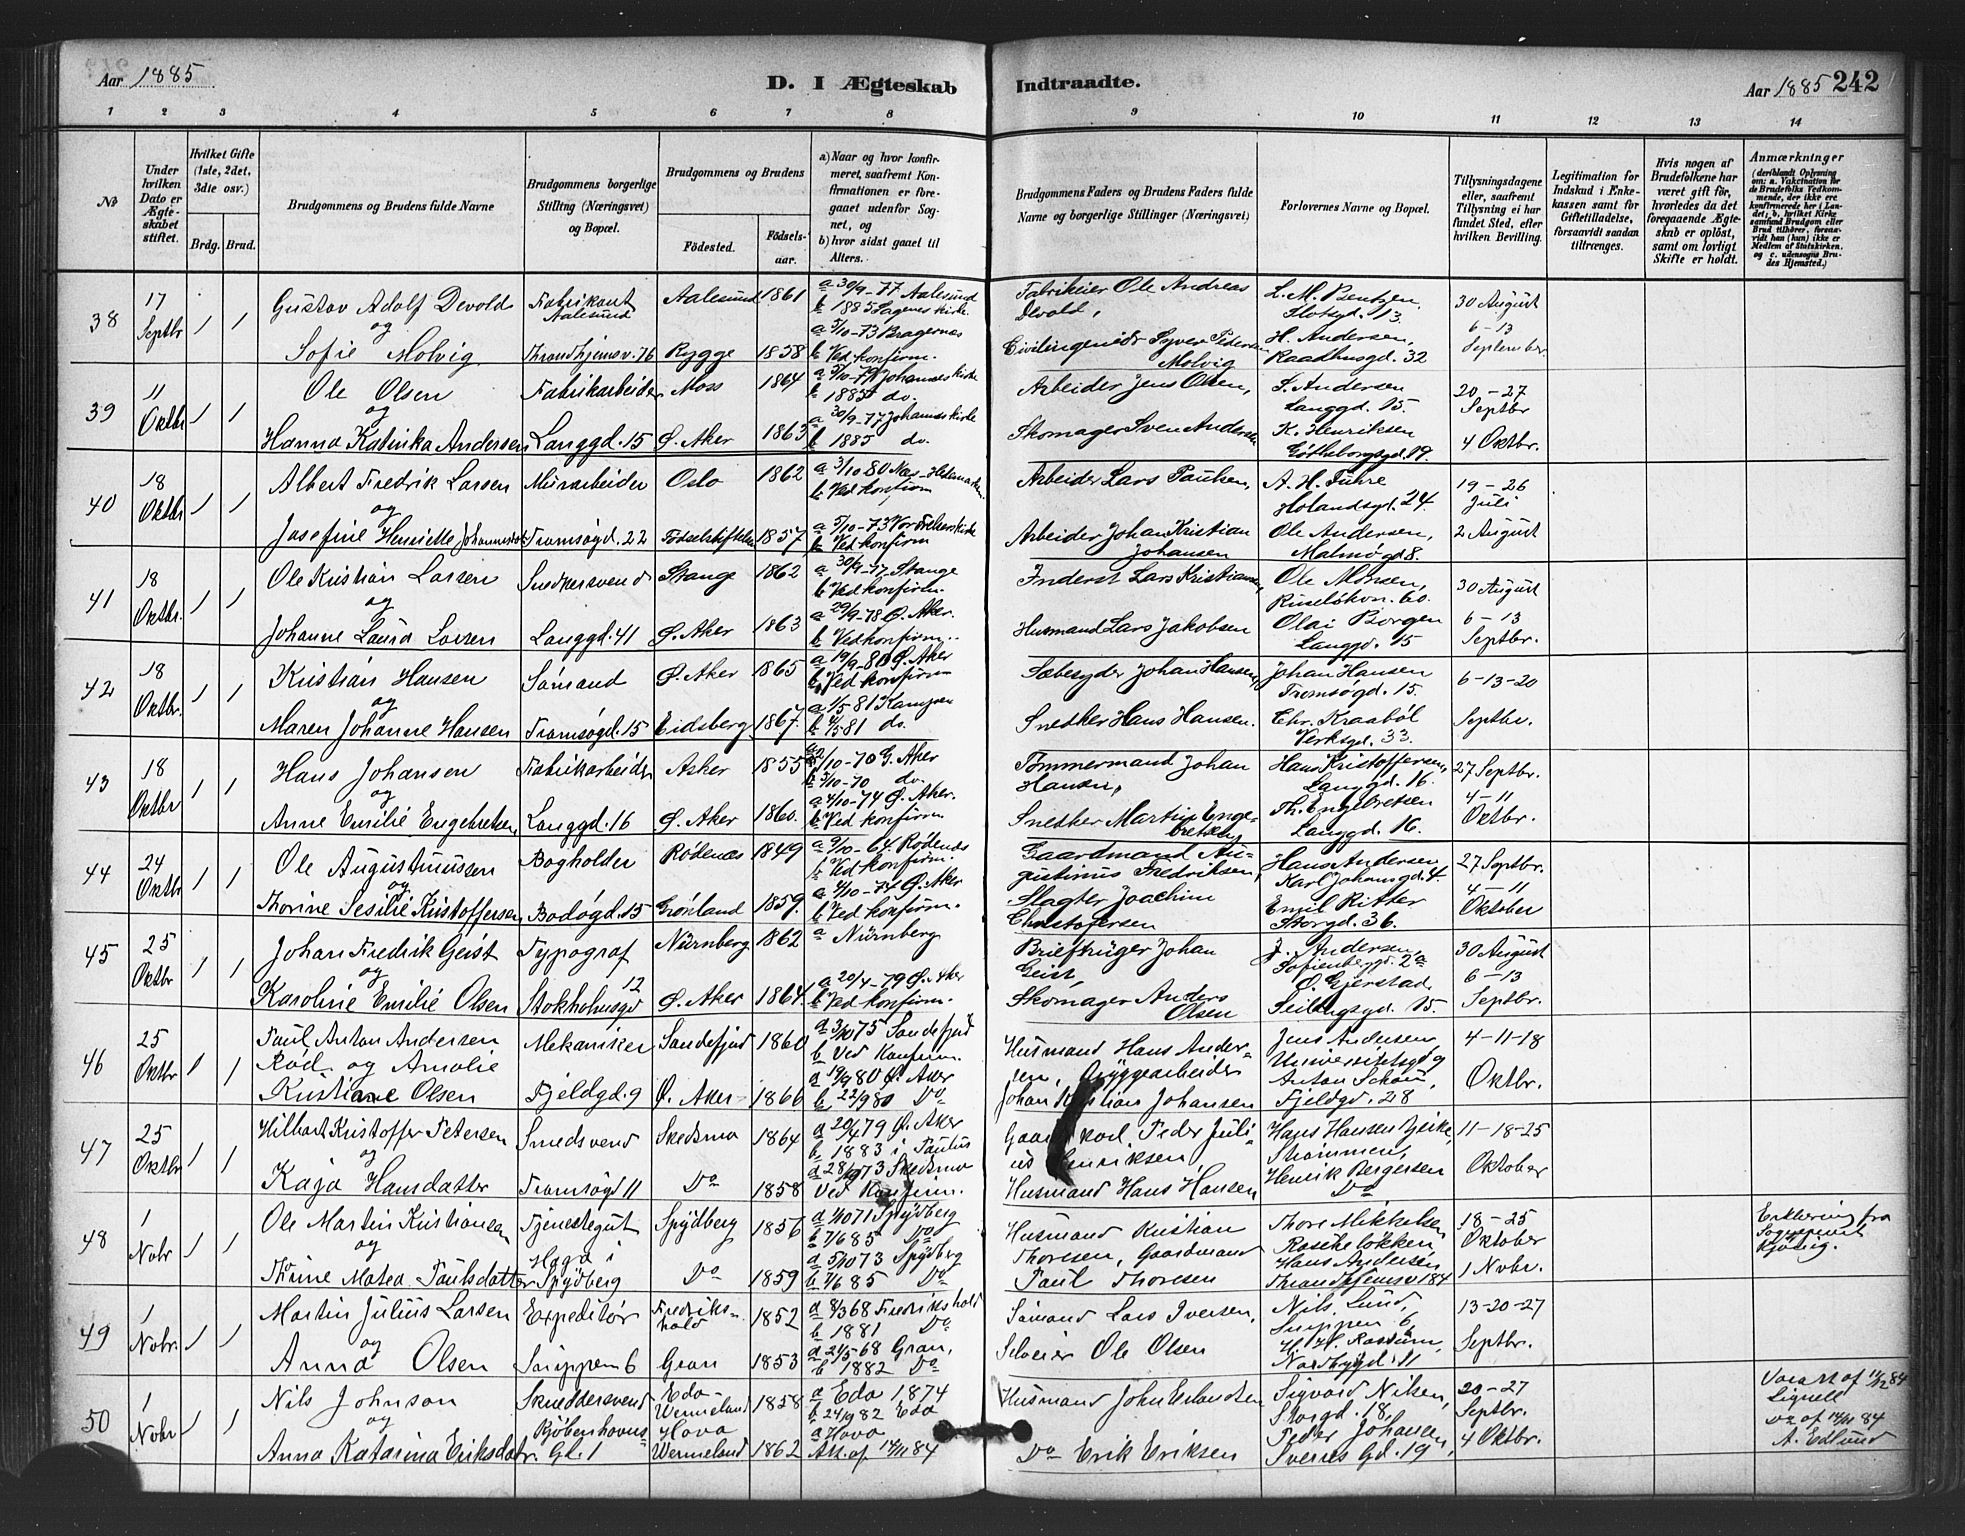 Aar 1885
D. I Ægteskab
Indtraadte.
Aar 1885 242
1 2 3 4 5 6 7 8 9 10 11 12 13 14
No
Under hvilken Dato er Ægteskabet stiftet.
Hvilket Gifte (1ste, 2det, 3die osv.)
Brdg. Brud.
Brudgommens og Brudens fulde Navne
Brudgommens borgerlige Stilling (Næringsvei) og Bopæl.
Brudgommens og Brudens
Fødested.
Fødselsaar.
a) Naar og hvor konfirmeret, saafremt Konfirmationen er foregaaet udenfor Sognet, og
b) hvor sidst gaaet til Alters.
Brudgommens Faders og Brudens Faders fulde Navne og borgerlige Stillinger (Næringsvei)
Forlovernes Navne og Bopæl.
Tillysningsdagene eller, saafremt Tillysning ei har fundet Sted, efter hvilken Bevilling.
Legitimation for Indskud i Enkekassen samt for Giftetilladelse, forsaavidt saadan tiltrænges.
Hvis nogen af Brudefolkene har været gift før, hvorledes da det foregaaende Ægteskab er opløst, samt om lovligt Skifte er holdt.
Anmærkninger (deriblandt Oplysning om: a. Vakcination for de Brudefolks Vedkommende, der ikke ere konfirmerede her i Landet; b. hvilket Kirkesamfund Brudgom eller Brud tilhører, forsaavidt han (hun) ikke er Medlem af Statskirken, og c. udensogns Brudes Hjemsted.)
38 17 Septbr 1 1 Gustav Adolf Devold Fabrikant Aalesund Aalesund 1861 a 30/9-77 Aalesund b 1885 Sagenes kirke Fabrikeier Ole Andreas Devold, L. M. Bentzen, Slotsgd. 13. 30 August
og
Sofie Molvig Throndhjemsv. 76 Rygge 1858 a 5/10-73 Bragernæs b Ved konfirm. Civilingeniør Syver Pedersen Molvig H. Andersen, Raadhusgd. 32 6-13 September
39 11 Oktbr 1 1 Ole Olsen Fabrikarbeider Moss 1864 Johannes kirke b 1885 do. Arbeider Jens Olsen, S. Andersen Langgd. 15. 20-27 Septbr
og
Hanna Katinka Andersen Langgd. 15 Ø. Aker 1863 a 30/9-77 Johannes kirke b 1885 do. Skomager Sven Andersen K. Henriksen Gøtheborgsgd. 19. 4 Oktbr
40 18 Oktbr 1 1 Albert Fredrik Larsen Murarbeider Oslo 1862 a 3/10 80 Næs Hedemarken b Ved konfirm Arbeider Lars Paulsen, A. H. Fuhre Holandsgd. 24. 19-26 Juli
og
Josefine Henriette Tromsøgd. 22 Fødselstiftelsen 1857 a 5/10-73 Vor Frelsers kirke b Ved konfirm Arbeider Johan Kristian Johansen Ole Andersen, Malmøgd 8. 2 August
41 18 Oktbr. 1 1 Ole Kristian Larsen Snedkersvend Stange 1862 Stange b Ved konfirm. Inderst Lars Kristiansen, Ole Monsen, Ruseløkv. 60. 30 August
og
Johanne Laura Larsen Langgd. 41 Ø. Aker 1863 a 29/9-78 Ø. Aker. b Ved konfirm.. Husmand Lars Jakobsen Olai Borgen Langgd. 15 6-13 Septbr.
42 18 Oktbr. 1 1 Kristian Hansen Sømand Ø. Aker 1865 a 19/9-80 Ø. Aker b Ved konfirm Sæbesyder Johan Hansen, Johan Hansen Tromsøgd. 15. 6-13-20
og
Maren Johanne Hansen Tromsøgd. 15 Eidsberg 1867. a 1/5 81 Kampen b 81 do. Snedker Hans Hansen. Chr. Kraabøl Verksgd. 33. Septbr.
43 18 Oktbr 1 1 Hans Johansen Fabrikarbeider Asker 1855 a 2/10-70 G. Aker b 3/10-70 do. Tømmermand Johan Hansen, Hans Kristoffersen, Langgd. 16. 27 Septbr.
og
Anne Emilie Engebretsen Langgd. 16 Ø. Aker 1860. a 4/10-74 Ø. Aker. b Ved konfirm Snedker Martin Engebretsen Th. Engebretsen Langgd. 16. 4-11 Oktbr.
44 24 Oktbr 1 1 Ole Augustinussen Bogholder Rødenæs 1849 a 9/10-64 Rødenæs b Ved konfirm. Gaardmand Augustinus Fredriksen, Hans Andersen Karl Johansgd. 4. 27 Septbr.
og
Thorine Sesilie Kristoffersen Bodøgd. 15 Grønland 1859. a 4/10-74 Ø. Aker b Ved konfirm. Slagter Joachim Christofersen Emil Ritter Storgd. 36. 4-11 Oktober
45 25 Oktbr 1 1 Johan Fredrik Geist Typograf Nürnberg 1862 a Nürnberg Briefträger Johan Geist, J. Andersen Sofienbergd. 2a 30 August
og
Karoline Emilie Olsen Stokholmsgd 12 Ø. Aker 1864. a 20/4-79 Ø. Aker b Ved konfirm. Skomager Anders Olsen O. Gjerstad, Seilengsgd. 15. 6-13 Septbr.
46 25 Oktbr 1 1 Paul Anton Andersen Mekaniker Sandefjord 1860 a 3/10 75 Sandefjord b Ved Konfirm. Husmand Hans Andersen, Bryggearbeider Jens Andersen, Universitetsgd 9 4-11-18
Rød og Amalie
Kristiane Olsen Fjeldgd. 9 Ø. Aker 1866 a 19/9 80 Ø. Aker b 22/9 80 Do Johan Kristian Johansen Anton Schou, Fjeldgd. 28 Oktbr.
47 25 Oktbr 1 1 Hilbart Kristoffer Petersen Smedsvend Skedsmo 1864 a 20/4 79 Ø. Aker b 1883 i Paulus Peder Julius Henriksen, Hans Hansen Strømmen, 11-18-25
og
Kaja Hansdatter Tromsøgd 11 Do 1858 a 28/9 73 Skedsmo Ved Konfirm. Husmand Hans Hansen Henrik Bergersen Do Oktober
48 1 Nobr 1 1 Ole Martin Kristiansen Tjenestegut Spydberg 1856 Spydberg b 7/6 85 Do Husmand Kristian Thoresen, Gaardmand Thore Mikkelsen Rosiheløkken 18-25 Oktober Erklæring fra
og
Thrine Matea Paulsdatter Haga i Spydberg Do 1859 a 5/10 73 Spydberg b 7/6 85 Do Paul Thoresen Hans Andersen Throndhjemsv 184 1 Nobr.
49 1 Nobr. 1 1 Martin Julius Larsen Expeditør Fredrikshald 1852 a 8/3 68 Fredrikshald b 1881 Do Sømand Lars Iversen, Nils Lund, Snippen 6 13-20-27
og
Anna Olsen Snippen 6 Gran 1853 a 24/5-68 Gran, b 1882 Do Selveier Ole Olsen H. H. Rossum, Nordbygd. 11 Septbr.
50 1 Nobr 1 1 Nils Johnson Skræddersvend Eda Wermeland 1858 a Eda 1874 b 24/9 82 Eda Husmand John Erlandsen Sigvard Nilsen, Storgd. 18. 20-27 Septbr. Vacc att af 11/12 84 Lignell
og
Anna Katarina Eriksdatr. Kjøbenhavns Gd. 1 Hova Wermeland 1862 a Hova Att. af 14/11 84 Do Erik Eriksen Peder Johansen, Sverres Gd. 19, 4 Oktbr. Do af 14/11 84 A. Edlund